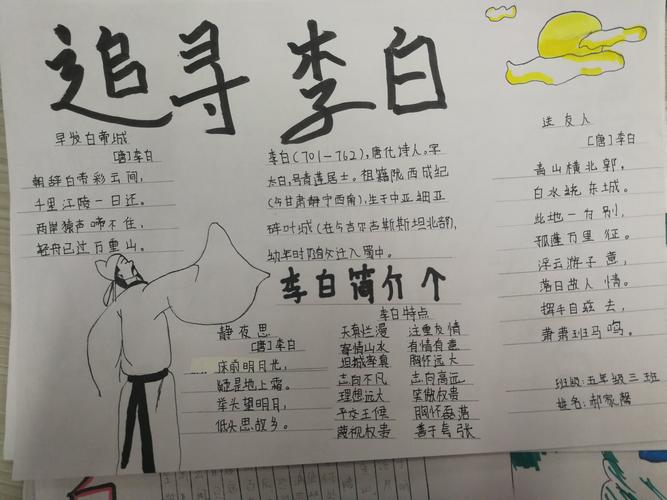 追寻李白
早发白帝城
[唐]李白
朝辞白帝彩云间,
千里江陵一日还。
两岸猿声啼不住,
轻舟已过万重山。
李白(701-762),唐代诗人。字
太白,号青莲居士。祖籍陇西成纪
(与甘肃静宁西南),生于中亚细亚
碎叶城(在与吉尔吉斯斯坦北部),
幼年时随父迁入蜀中。
李白简介个
静夜思
[唐]李白
床前明月光,
疑是地上霜。
举头望明月,
低头思故乡。
李白特点
天真烂漫 注重友情
寄情山水 有情有意
坦诚率真 胸怀远大
志向不凡 志向高远
理想远大 笑傲权贵
平交王侯 胸怀磊落
蔑视权贵 善于夸张
送友人
[唐]李白
青山横北郭,
白水绕东城。
此地一为别,
孤蓬万里征。
浮云游子意,
落日故人情。
挥手自兹去,
萧萧班马鸣。
班级:五年级三班
姓名:郝家馨